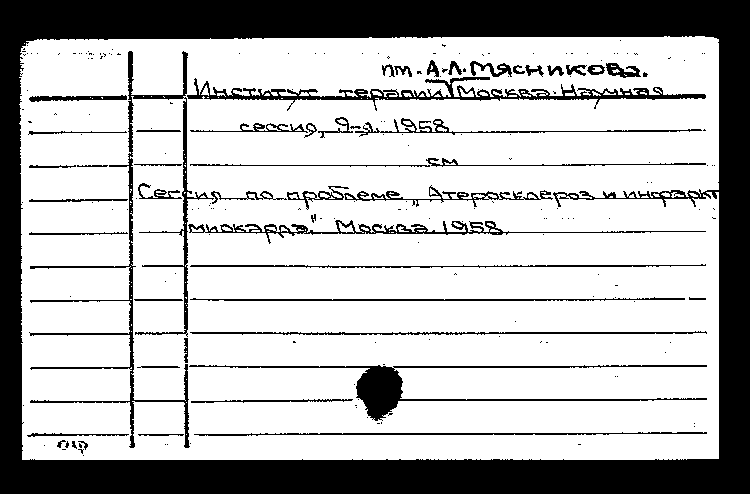 им. А.Л. Мясникова.
Институт терапии Москва. Научная
сессия, 9-я. 1958.
см
Сессия по проблеме „Атеросклероз и инфаркт
миокарда." Москва. 1958.